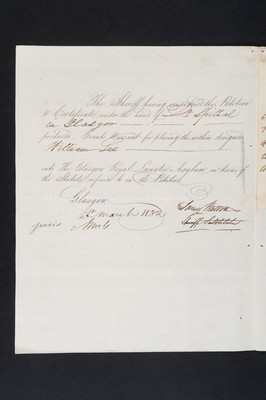 The Sheriff having considered this Petition
& Certificate under the hand of Dr Spittal
in Glasgow
produced, Grants Warrant for placing the within designed
William Lee
into the Glasgow Royal Lunatic Asylum in terms of
the Statutes referred to in the Petition
Glasgow
March
James Watson
Sheriff Substitute